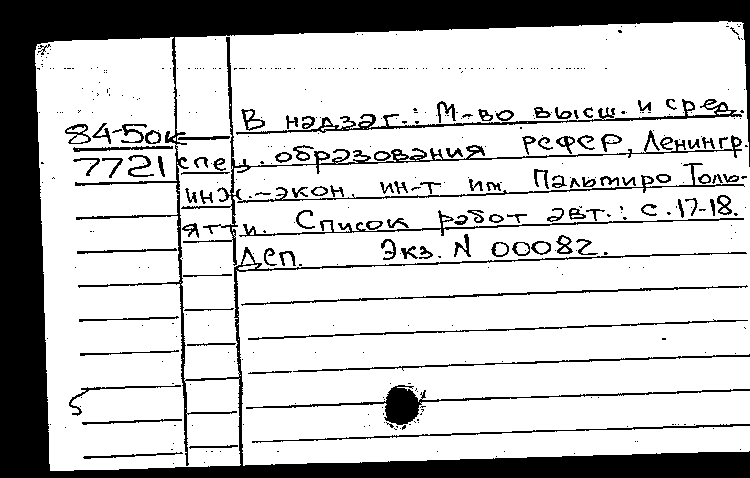 В надзаг.: М-во высш. и сред.
84-50к
7721 спец. образования РСФСР, Ленингр.
инж.-экон. ин-т им. Пальмиро Толь-
ятти. Список работ авт.: с. 17-18.
Деп. Экз. N 00082.